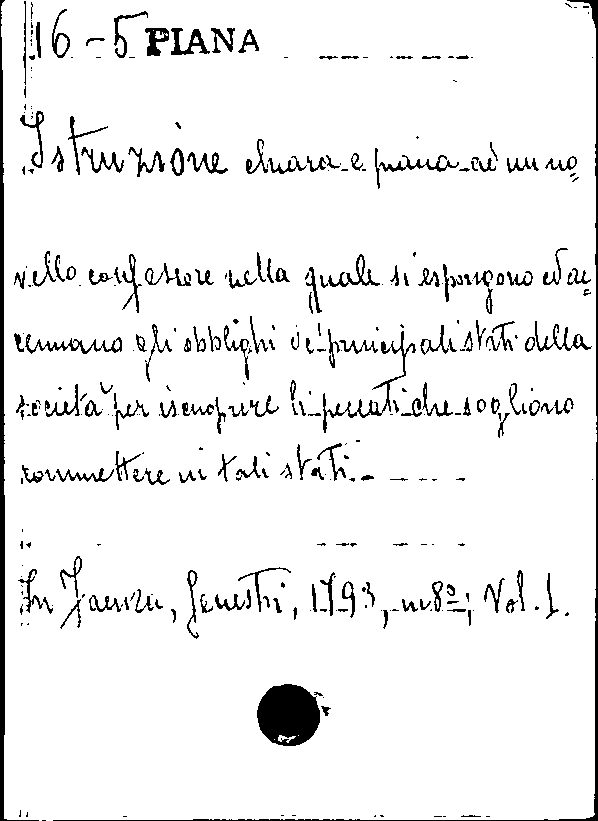 16-5 PIANA
Istruzione chiara e piana ad un no=
vello confessore nella quale si espongono ed ac=
cennano gli obblighi de' principali stati della
società per iscuoprire li peccati che sogliono
commettere in tali stati.-
In Faenza, Genestri, 1793, in 8º; Vol. 1.